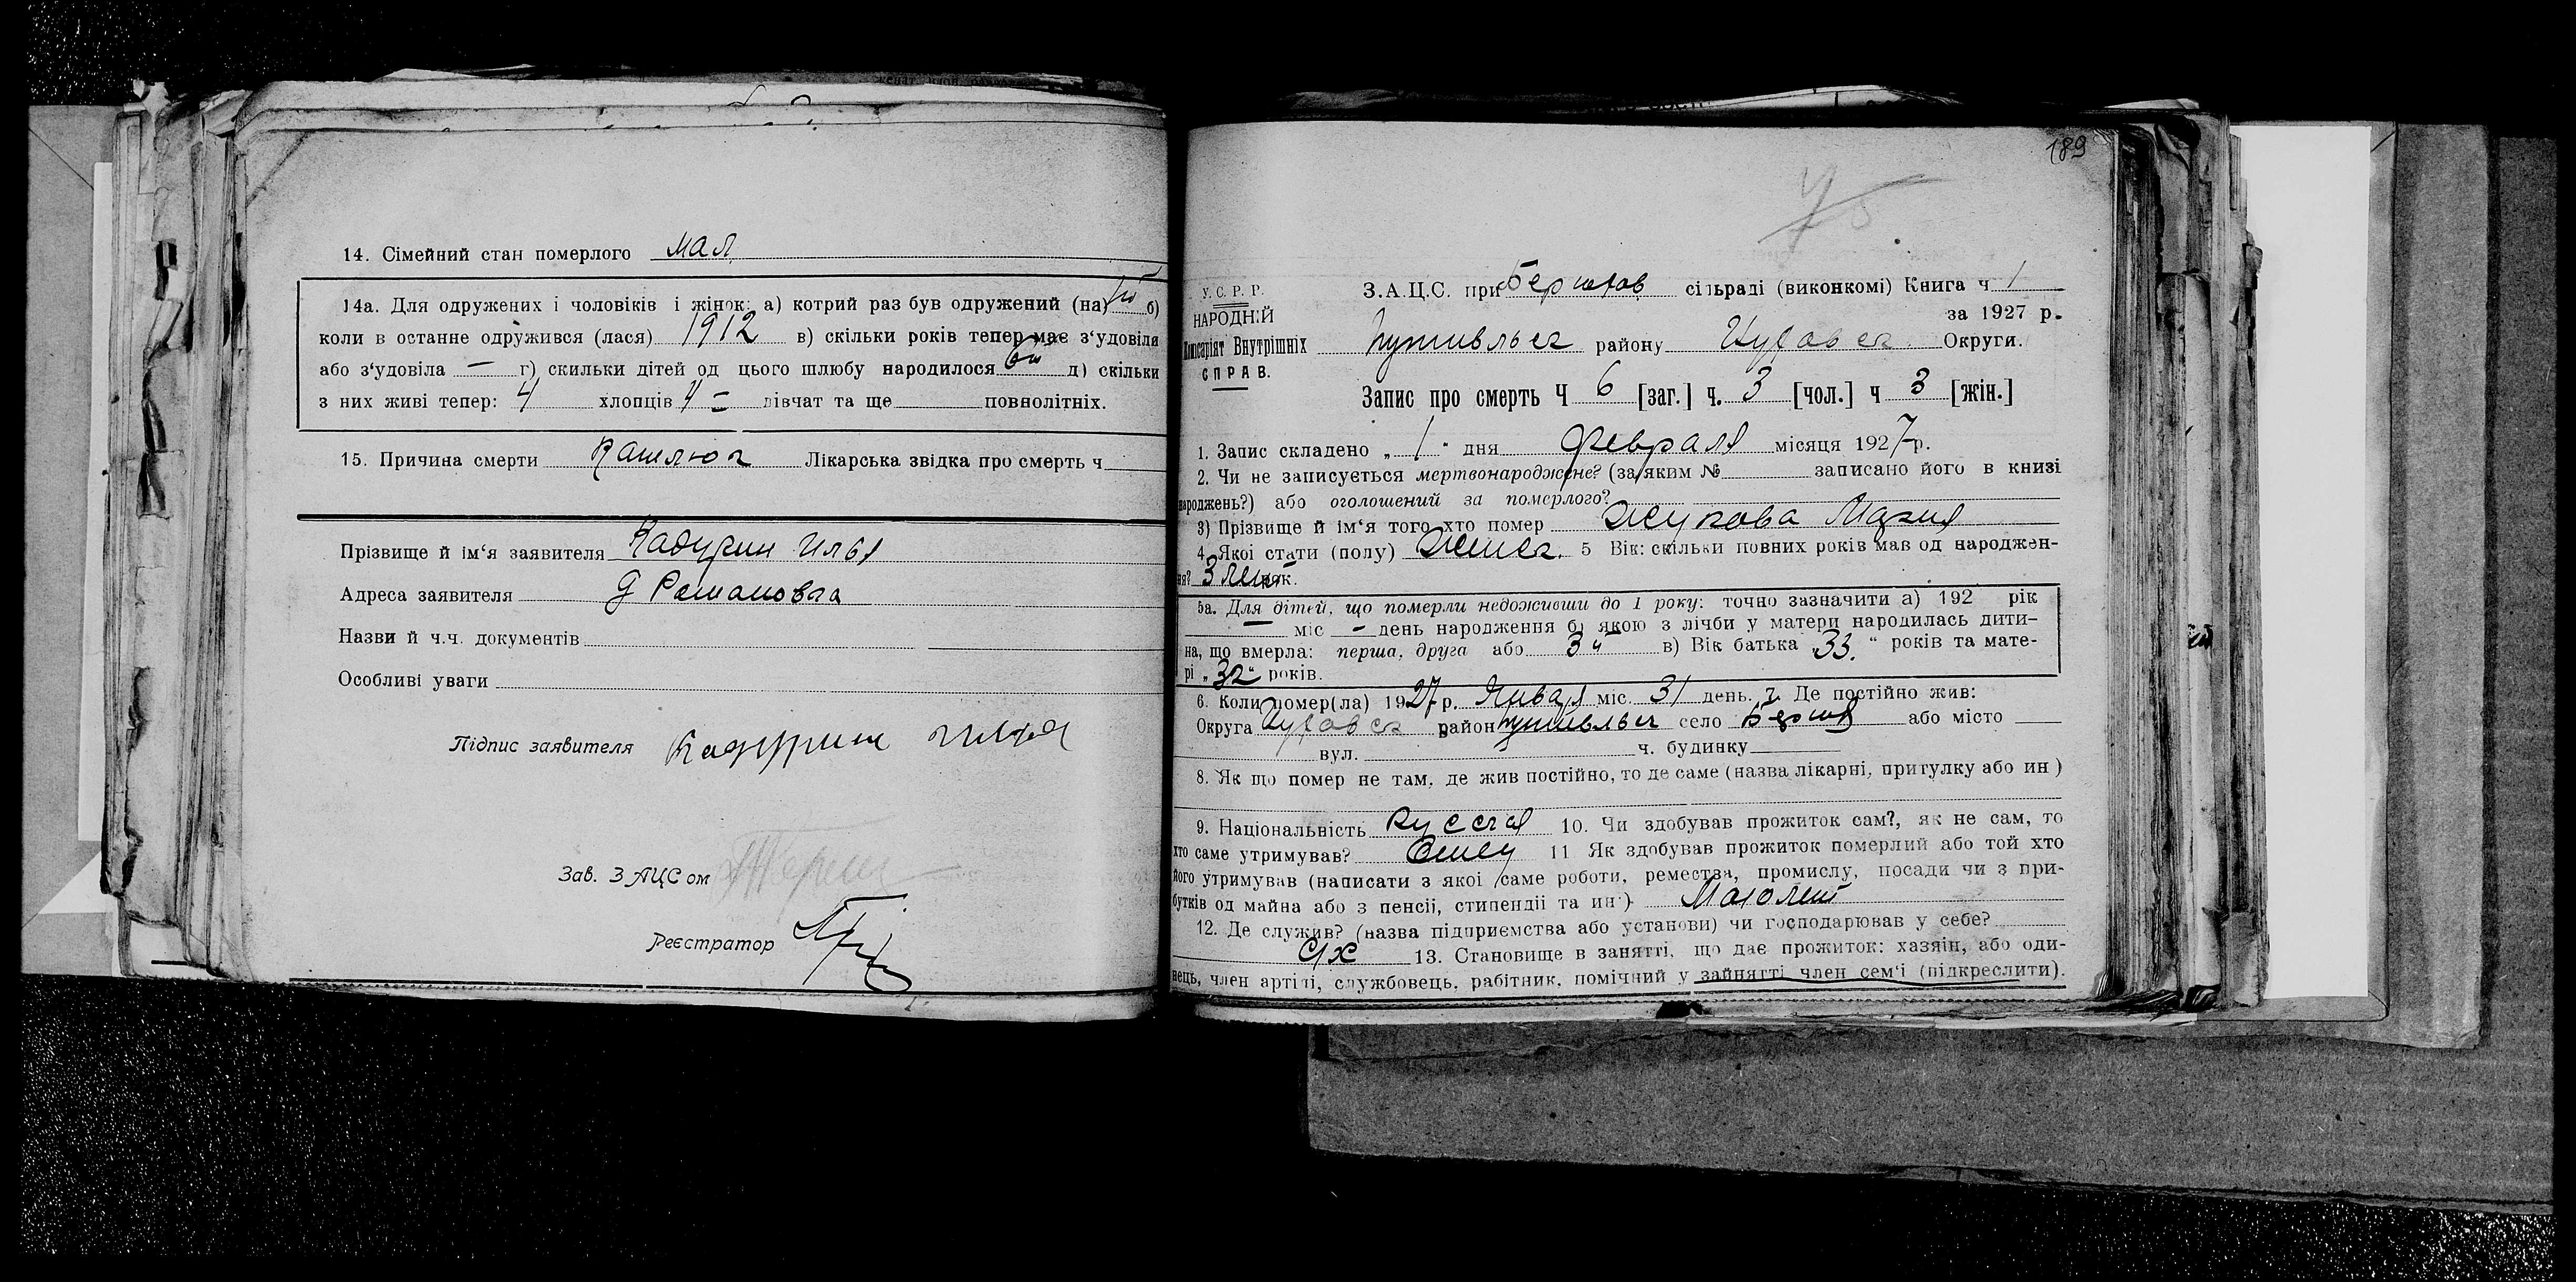 14. Сімейний стан померлого мал
14а. Для одружених і чоловіків і жінок: а) котрий раз був одружений (на) б)
коли в останне одружився (лася) 1912 в) скільки років тепер має з'удовіля
або з'удовіла — г) скильки дітей од цього шлюбу народилося 6й д) скільки
з них живі тепер: 4 хлопців 4 — дівчат та ще повнолітніх.
15. Причина смерти Кашлюк Лікарська звідка про смерть ч
Прізвище й ім'я заявителя Кадурин Илья
Адреса заявителя д
Назви й ч.ч. документів
Особливі уваги
Підпис заявителя Кадурин Илья
Зав. ЗАЦСом
Реєстратор
189
У. С. Р. Р.
НАРОДНІЙ
Комісаріят Внутрішніх
СПРАВ.
З.А.Ц.С. при сільраді (виконкомі) Книга ч 1
за 1927 р.
Путивльск району Округи.
Запис про смерть Ч 6 [заг.] ч. 3 [чол.] ч 3 [жін.]
1. Запис складено „ 1 " дня февраля місяця 1927 р.
2. Чи не записується мертвонароджене? (за яким № записано його в книзі
народжень?) або оголошений за померлого?
3) Прізвище й ім'я того хто помер Жукова Мария
4. Якоі стати (полу) Женск. 5 Вік: скільки повних років мав од народжен-
ня? 3 лет як.
5а. Для дітей, що померли недоживши до 1 року: точно зазначити а) 192 рік
— міс — день народження б) якою з лічби у матери народилась дити-
на, що вмерла: перша, друга або 3й в) Вік батька „33" років та мате-
рі „32" років.
6. Коли помер(ла) 1927 р. Января міс. 31 день. 7. Де постійно жив:
Округа район Путивльск село або місто
вул. ч. будинку
8. Як що помер не там, де жив постійно, то де саме (назва лікарні, притулку або ин )
9. Національність Русская 10. Чи здобував прожиток сам?, як не сам, то
хто саме утримував? Отец 11 Як здобував прожиток померлий або той хто
його утримував (написати з якоі саме роботи, ремества, промислу, посади чи з при-
бутків од майна або з пенсіі, стипендіі та ин·)
12. Де служив? (назва підприємства або установи) чи господарював у себе?
с/х 13. Становище в занятті, що дає прожиток: хазяін, або оди-
нець, член артілі, службовець, рабітник, помічний у зайнятті член сем'і (підкреслити).